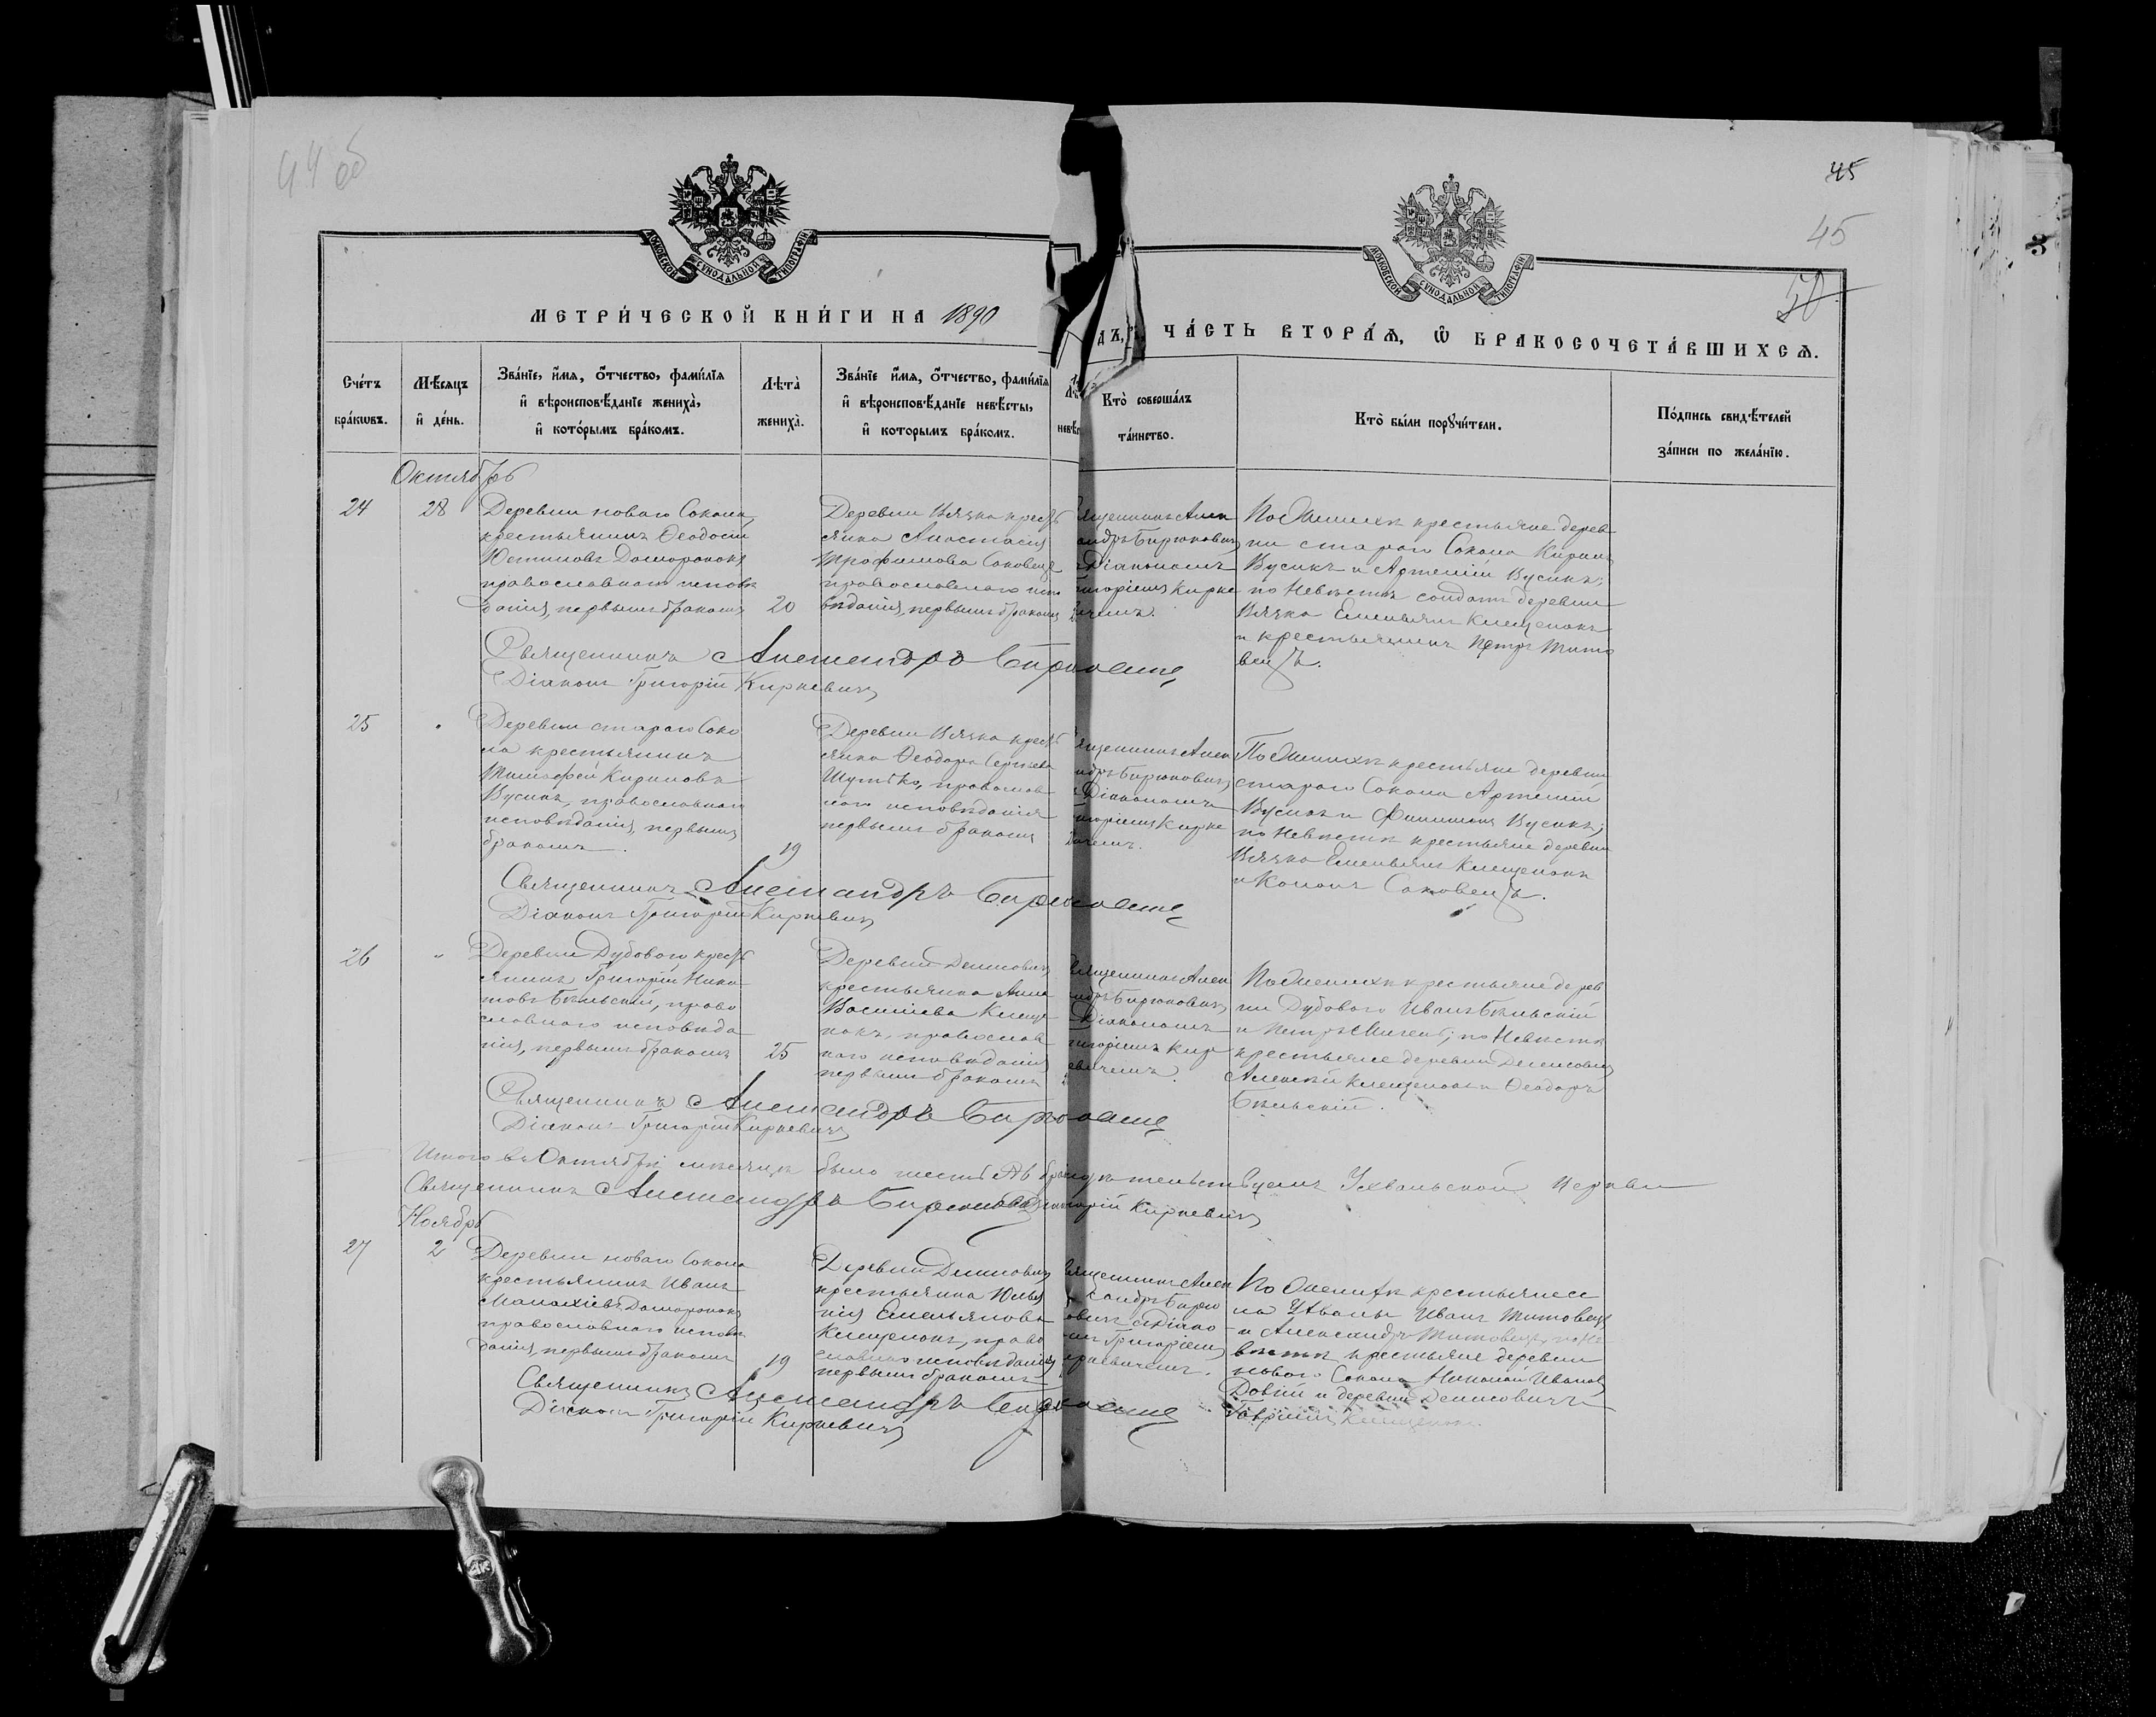 44 об
45
45
50
3
МОСКОВСКОЙ СѴНОДАЛЬНОЙ ТИПОГРАФІИ
МОСКОВСКОЙ СѴНОДАЛЬНОЙ ТИПОГРАФІИ
МЕТРИ́ЧЕСКОЙ КНИ́ГИ НА 1890
ДЪ, ЧА́СТЬ ВТОРА́Ѧ, Ѽ БРАКОСОЧЕТА́ВШИХСѦ.
Сче́тъ бра́кѡвъ.
Мѣ́сяцъ и҆ де́нь.
Зва́нїе, и҆́мя, ѻ҆́тчество, фами́лїя
и҆ вѣроисповѣ́данїе жениха̀,
и҆ кото́рымъ бра́комъ.
Лѣта̀
жениха̀.
Зва́нїе и҆́мя, ѻ҆́тчество, фами́лїя
и҆ вѣроисповѣ́данїе невѣ́сты,
и҆ которымъ бра́комъ.
Кто̀ соверша́лъ
та́инство.
Кто̀ бы́ли порꙋчи́тели.
По́дпись свидѣ́телей
за́писи по жела́нїю.
Октябрь
24
28
Деревни новаго Сокола
крестьянинъ Ѳеодосій
Юстиновъ Доморонокъ
православнаго исповѣ
данія, первымъ бракомъ
20
Деревни Вязка кресть
янка Анастасія
Трофимова Соковецъ
православнаго испо
вѣданія, первымъ бракомъ
ященникъ Алек
андръ Бирюковичъ
Діакономъ
игоріемъ Кирке
вичемъ.
По Женихѣ крестьяне дерев
ни стараго Сокола Кирилъ
Бусикъ и Артемій Бусикъ;
по Невѣстѣ солдатъ деревни
Вязка Емельянъ Клещенокъ
и крестьянинъ Петръ Тито
вецъ.
Священникъ Александръ Бирюковичъ
Діаконъ Григорій Киркевичъ
25
"
Деревни стараго Соко
ла крестьянинъ
Тимофей Кириловъ
Бусикъ, православнаго
исповѣданія, первымъ
бракомъ.
19
Деревни Вязка кресть
янка Ѳеодора Сергѣева
Шутько, православ
наго исповѣданія
первымъ бракомъ
ященникъ Алек
ндръ Бирюковичъ
Діакономъ
игоріемъ Кирке
вичемъ.
По Женихѣ крестьяне деревни
стараго Сокола Артемій
Бусикъ и Филимонъ Бусикъ;
по Невѣстѣ крестьяне деревни
Вязка Емельянъ Клещенокъ
и Кононъ Соковецъ.
Священникъ Александръ Бирюковичъ
Діаконъ Григорій Киркевичъ
26
"
Деревни Дубоваго кресть
янинъ Григорій Ники
товъ Бѣльскій, право
славнаго исповѣда
нія, первымъ бракомъ
25
Деревни Денисовичъ
крестьянка Анна
Васильева Клеще
нокъ, православ
наго исповѣданія
первымъ бракомъ
вященникъ Алек
андръ Бирюковичъ
Діакономъ
игоріемъ Кир
евичемъ.
По Женихѣ крестьяне дерев
ни Дубоваго Иванъ Бѣльскій
и Петръ; по Невѣстѣ
крестьяне деревни Денисовичъ
Алексѣй Клещенокъ и Ѳеодоръ
Бѣльскій.
Священникъ Александръ Бирюковичъ
Діаконъ Григорій Киркевичъ
Итого въ Октябрѣ мѣсяцѣ было Ухвальской Церкви
Священникъ Александръ Бирюковичъ Григорій Киркевичъ
Ноябрь
27
2
Деревни новаго Сокола
крестьянинъ Иванъ
Малахіевъ Доморонокъ
православнаго исповѣ
данія, первымъ бракомъ
19
Деревни Денисовичъ
крестьянка Юлья
нія Емельянова
Клещенокъ, право
славнаго исповѣданія
первымъ бракомъ
вященникъ Алек
сандръ Бирю
ковичъ съ Діако
номъ Григоріемъ
иркевичемъ.
По Женихѣ крестьяне се
ла Ухвалы Иванъ Титовецъ
и Александръ Титовецъ, по Не
вѣстѣ крестьяне деревни
новаго Сокола Николай Ивановъ
и деревни Денисовичъ
Гавріилъ Клещенокъ.
Священникъ Александръ Бирюковичъ
Діаконъ Григорій Киркевичъ